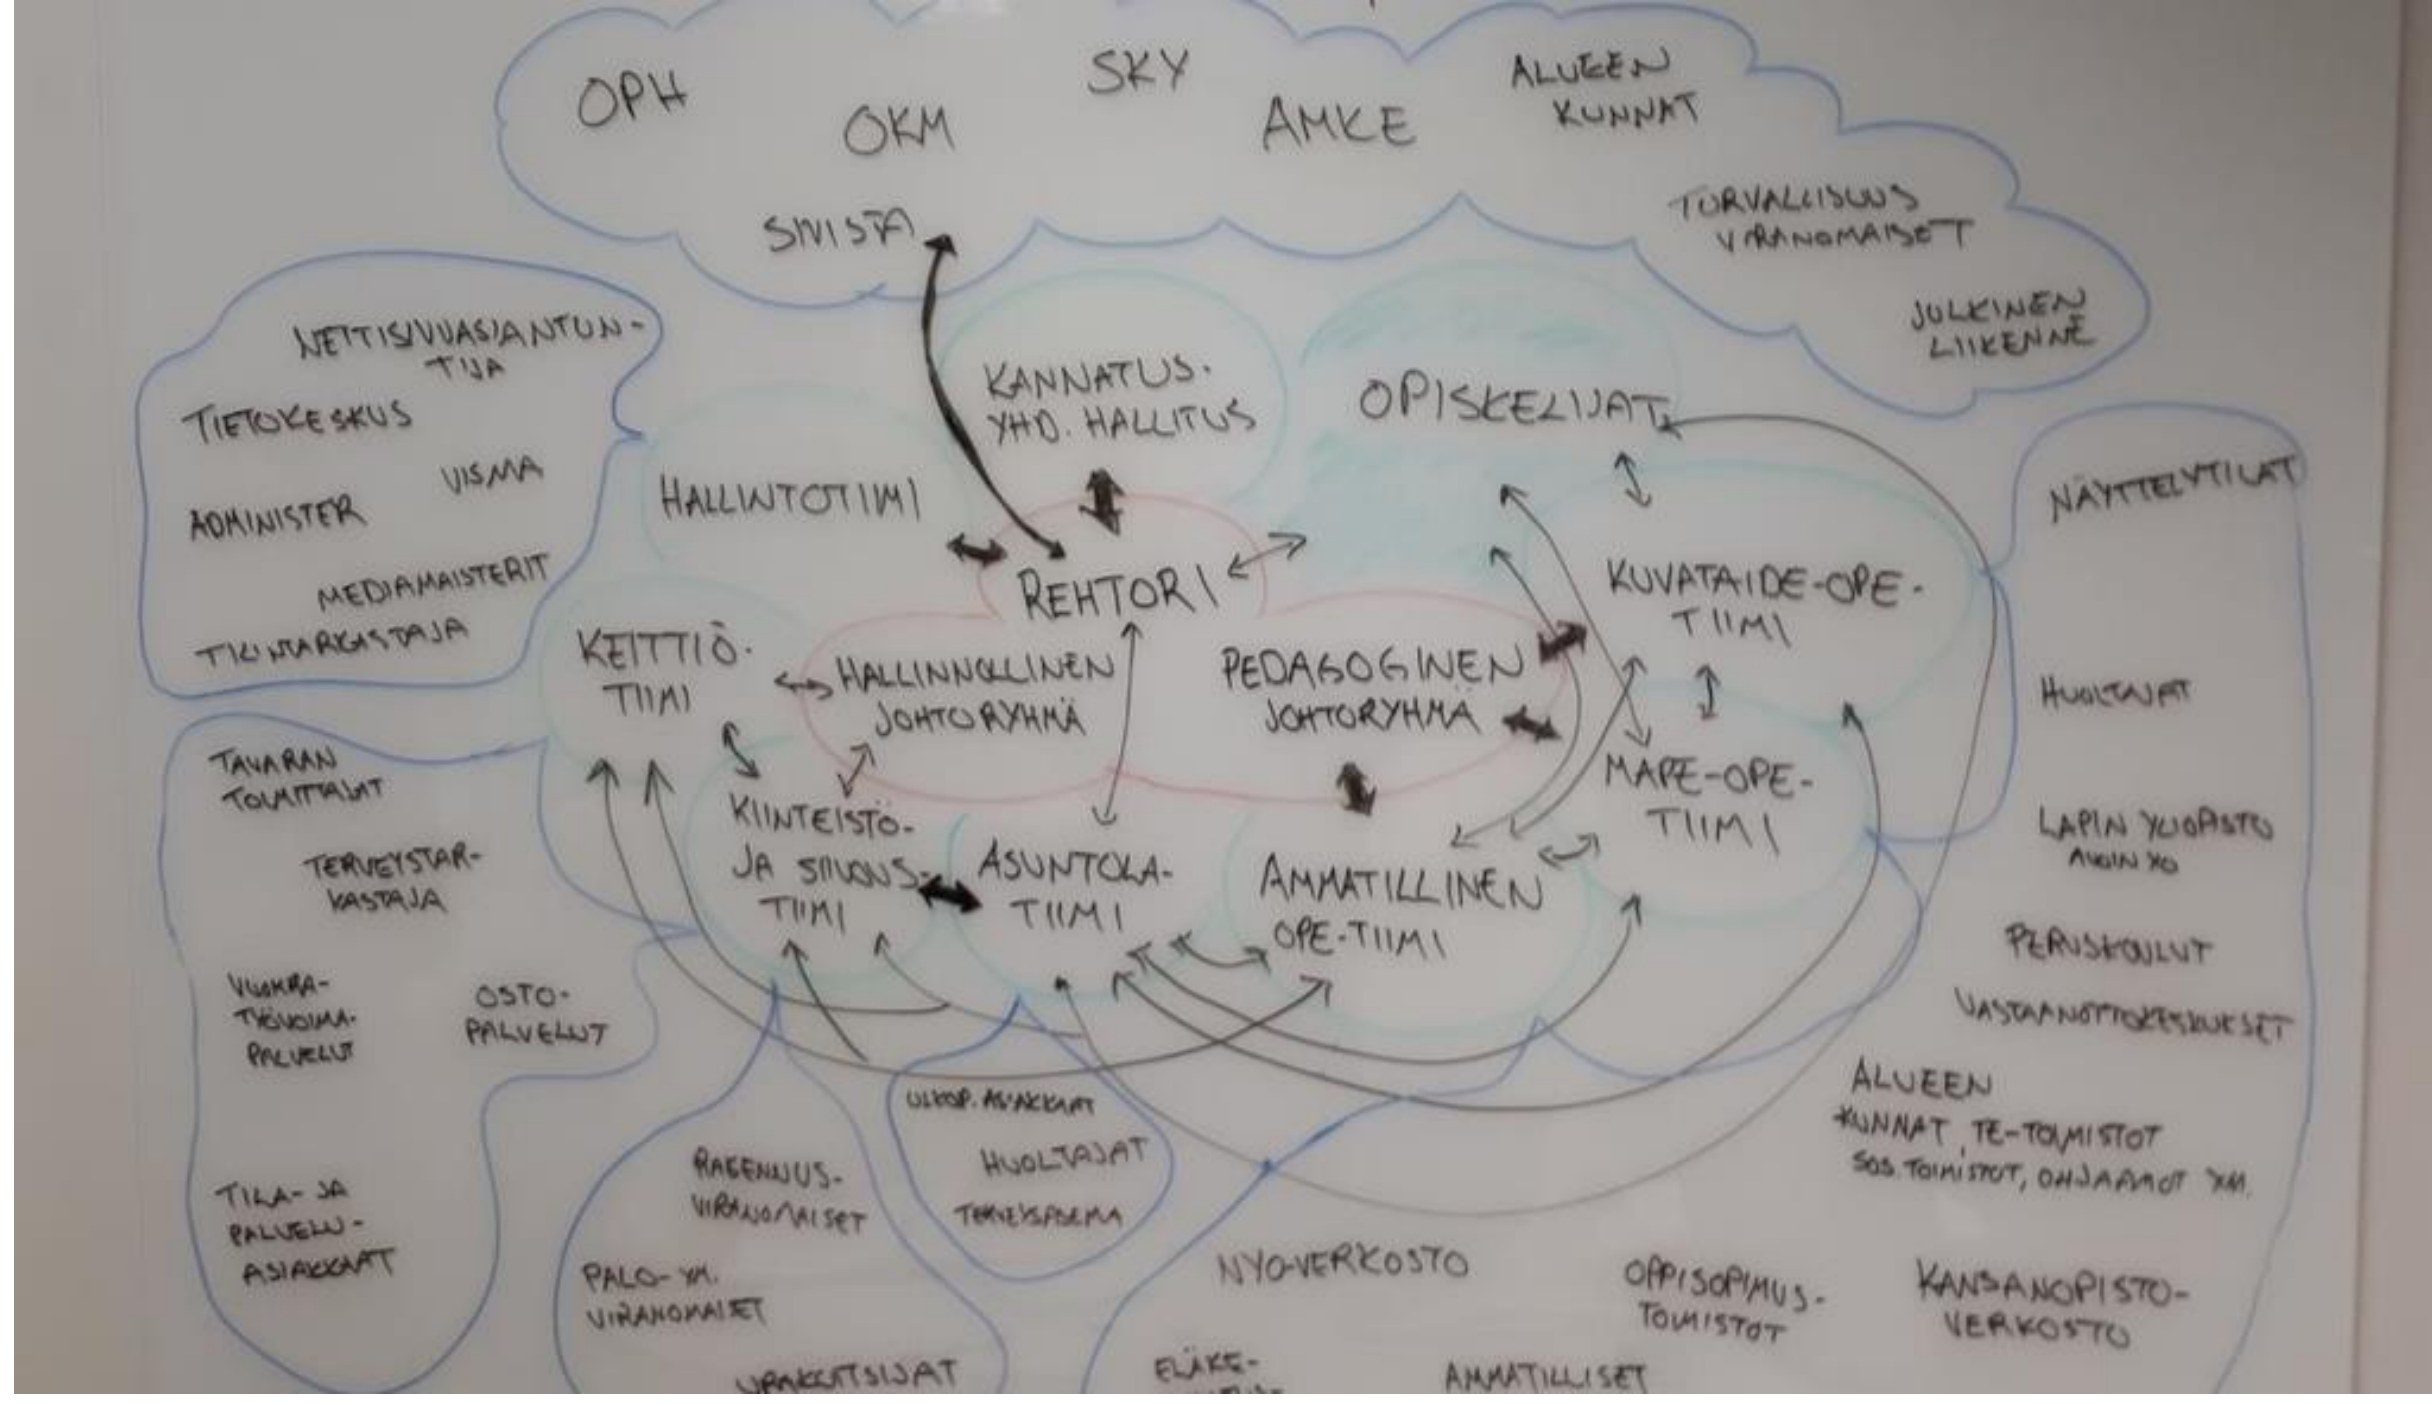 OPH
OKM
SKY
AMKE
ALUEEN
KUNNAT
SIVISTA
TURVALLISUUS
VIRANOMAISET
JULKINEN
LIIKENNE
NETTISIVUASIANTUN-
TIJA
TIETOKESKUS
VISMA
ADMINISTER
MEDIAMAISTERIT
TILINTARKASTAJA
KANNATUS.
YHD. HALLITUS
OPISKELIJAT
HALLINTOTIIMI
REHTORI
KEITTIÖ-
TIIMI
HALLINNOLLINEN
JOHTORYHMÄ
PEDAGOGINEN
JOHTORYHMÄ
KUVATAIDE-OPE-
TIIMI
MAPE-OPE-
TIIMI
KIINTEISTÖ-
JA SIIVOUS-
TIIMI
ASUNTOLA-
TIIMI
AMMATILLINEN
OPE-TIIMI
NÄYTTELYTILAT
HUOLTAJAT
LAPIN YLIOPISTO
AVOIN YO
PERUSKOULUT
VASTAANOTTOKESKUKSET
ALUEEN
KUNNAT, TE-TOIMISTOT
SOS. TOIMISTOT, OHJAAMOT YM.
TAVARAN
TOIMITTAJAT
TERVEYSTAR-
KASTAJA
VUOKRA-
TYÖVOIMA-
PALVELUT
OSTO-
PALVELUT
TILA- JA
PALVELU-
ASIAKKAAT
RAKENNUS-
VIRANOMAISET
PALO- YM.
VIRANOMAISET
URAKOITSIJAT
ULKOP. ASIAKKAAT
HUOLTAJAT
TERVEYSASEMA
NYO-VERKOSTO
OPPISOPIMUS-
TOIMISTOT
KANSANOPISTO-
VERKOSTO
ELÄKE-
AMMATILLISET